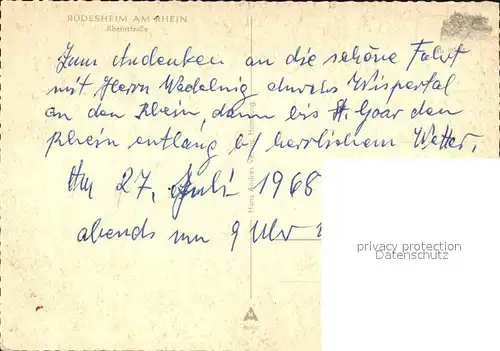 RÜDESHEIM AM RHEIN
Rheinstraße
Zum Andenken an die schöne Fahrt
mit Herrn durchs Wispertal
an den Rhein, dann bis St. Goar den
Rhein entlang b/ herrlichem Wetter.
Am 27. Juli 1968
abends um 9 Uhr
Hans Andres
privacy protection
Datenschutz